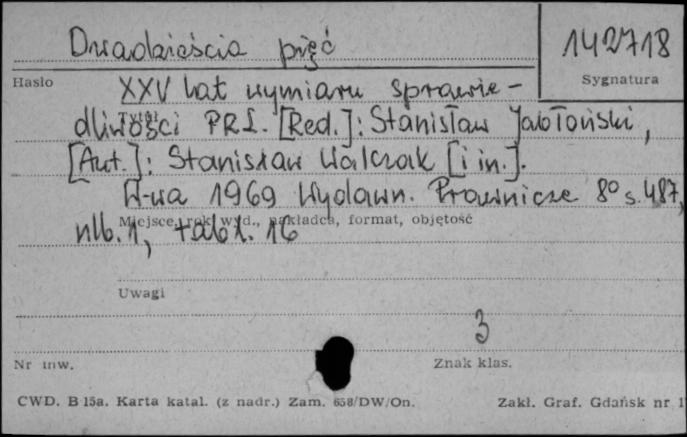 Dwadzieścia pięć 142718
Hasło Sygnatura
XXV lat wymiaru sprawie-
Tytuł
dliwości PRL. [Red.]: Stanisław Jabłoński,
[Aut.]: Stanisław Walczak [i in.].
W-wa 1969 Wydawn. Prawnicze 8° s. 487,
Miejsce, rok wyd., nakładca, format, objętość
nlb. 1, tabl. 16
Uwagi
3
Nr inw. Znak klas.
CWD. B 15a. Karta katal. (z nadr.) Zam. 658/DW/On. Zakł. Graf. Gdańsk nr 1